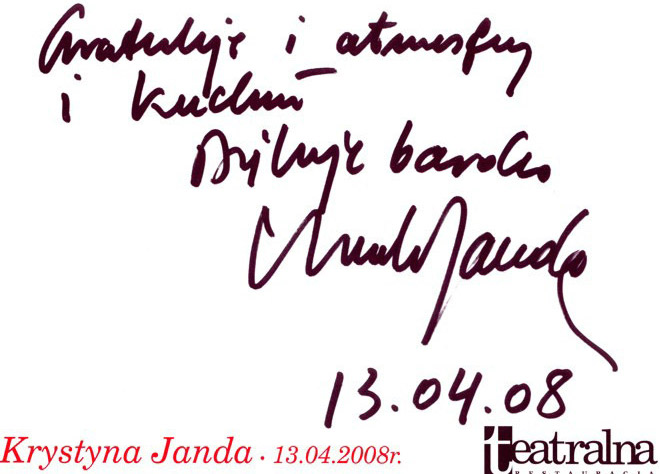 Gratuluję i atmosfery
i kuchni
Dziękuję bardzo
Krystyna Janda
13.04.08
Krystyna Janda · 13.04.2008r.
teatralna
RESTAURACJA